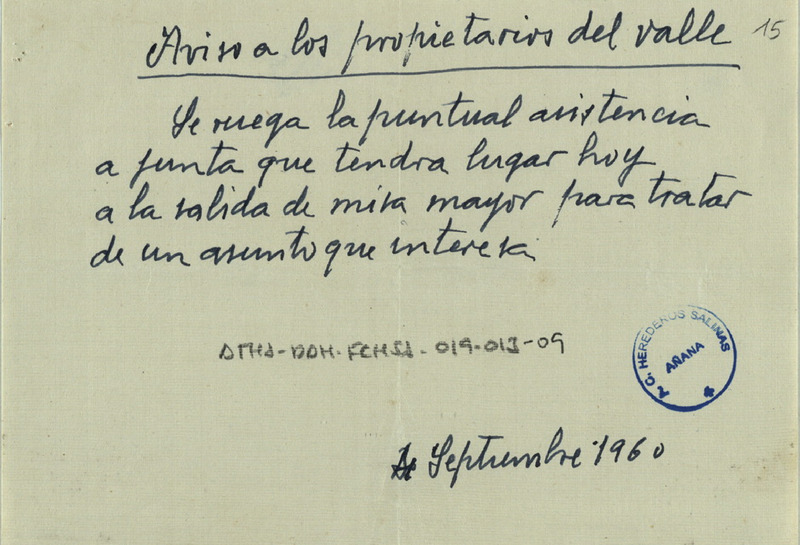 Aviso a los propietarios del valle 15
Se ruega la puntual asistencia
a junta que tendra lugar hoy
a la salida de misa mayor para tratar
de un asunto que interesa
ATHA-DAH-FCHSA-019-013-09
C. HEREDEROS SALINAS
AÑANA
Septiembre 1960